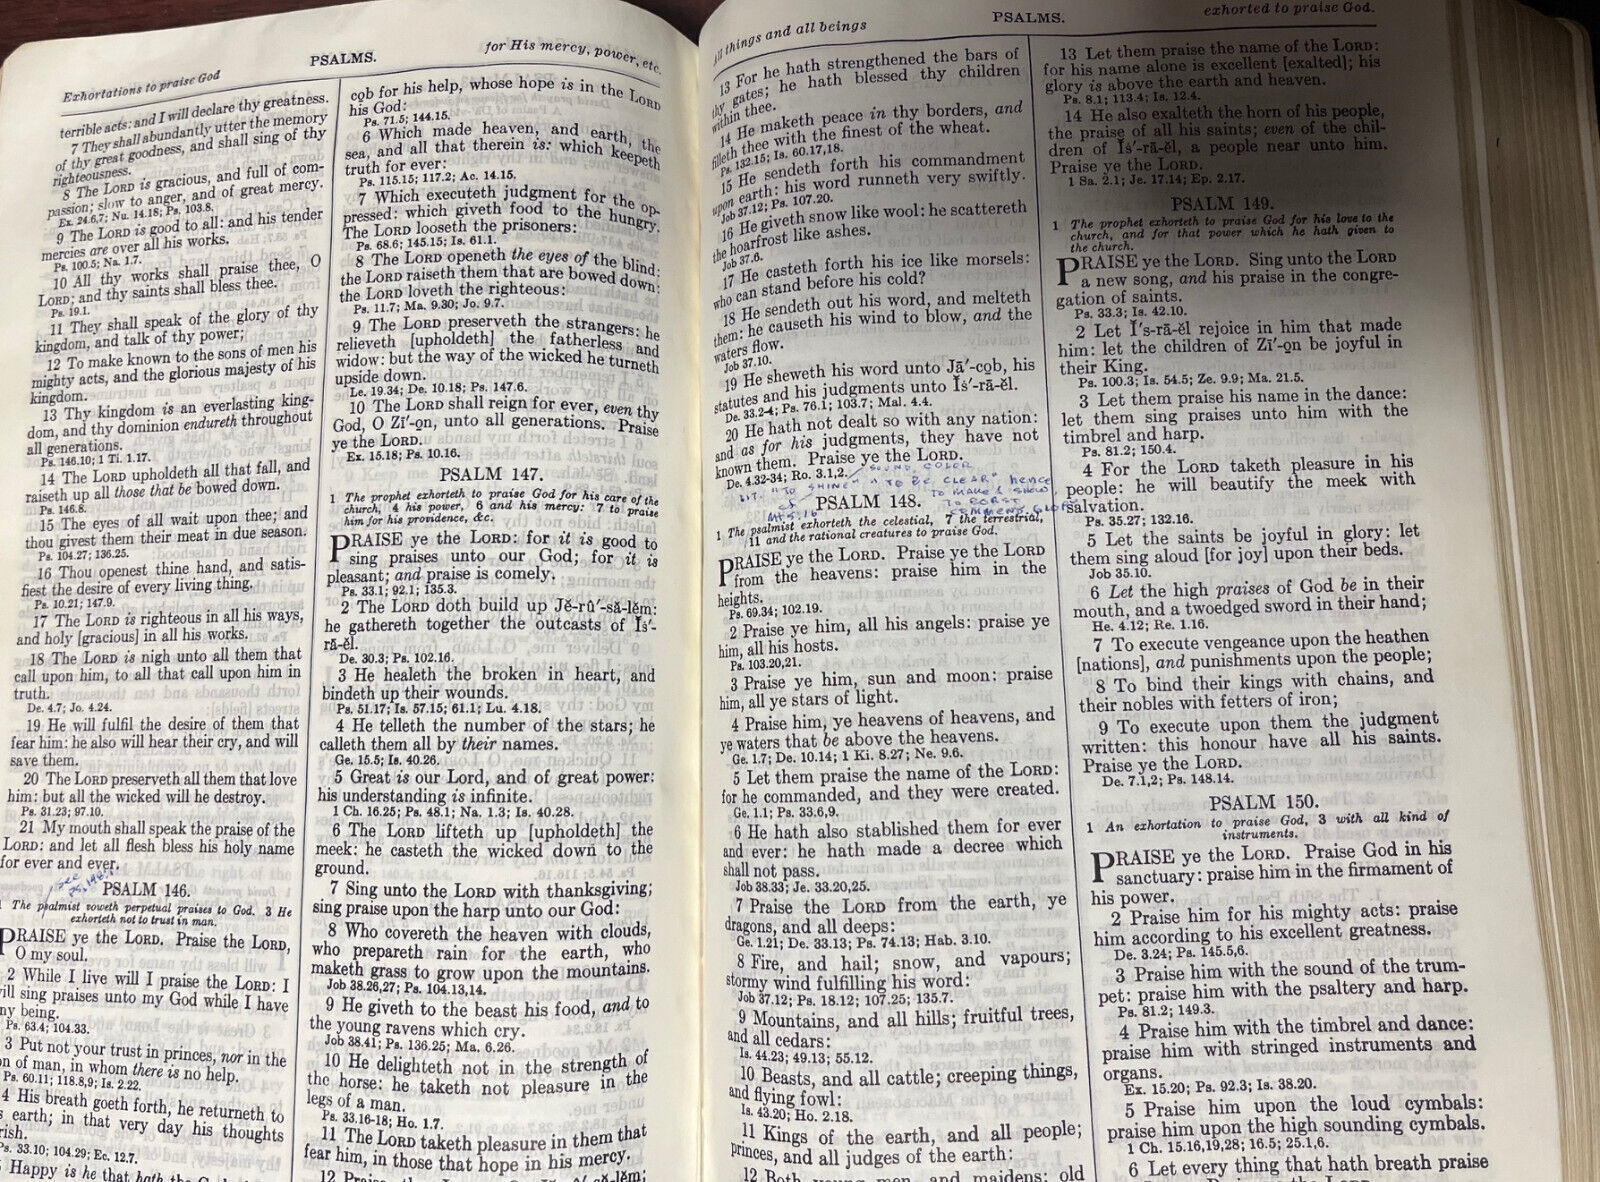 Exhortations to praise God
PSALMS.
for His mercy, power, etc.
terrible acts: and I will declare thy greatness.
7 They shall abundantly utter the memory
of thy great goodness, and shall sing of thy
righteousness.
8 The LORD is gracious, and full of com-
passion; slow to anger, and of great mercy.
Ex. 24.6,7; Nu. 14.18; Ps. 103.8.
9 The LORD is good to all: and his tender
mercies are over all his works.
Ps. 100.5; Na. 1.7.
10 All thy works shall praise thee, O
LORD; and thy saints shall bless thee.
Ps. 19.1.
11 They shall speak of the glory of thy
kingdom, and talk of thy power;
12 To make known to the sons of men his
mighty acts, and the glorious majesty of his
kingdom.
13 Thy kingdom is an everlasting king-
dom, and thy dominion endureth throughout
all generations.
Ps. 146.10; 1 Ti. 1.17.
14 The LORD upholdeth all that fall, and
raiseth up all those that be bowed down.
Ps. 146.8.
15 The eyes of all wait upon thee; and
thou givest them their meat in due season.
Ps. 104.27; 136.25.
16 Thou openest thine hand, and satis-
fiest the desire of every living thing.
Ps. 10.21; 147.9.
17 The LORD is righteous in all his ways,
and holy [gracious] in all his works.
18 The LORD is nigh unto all them that
call upon him, to all that call upon him in
truth.
De. 4.7; Jo. 4.24.
19 He will fulfil the desire of them that
fear him: he also will hear their cry, and will
save them.
20 The LORD preserveth all them that love
him: but all the wicked will he destroy.
Ps. 31.23; 97.10.
21 My mouth shall speak the praise of the
LORD: and let all flesh bless his holy name
for ever and ever.
see
PSALM 146.
1 The psalmist voweth perpetual praises to God. 3 He
exhorteth not to trust in man.
PRAISE ye the LORD. Praise the LORD,
O my soul.
2 While I live will I praise the LORD: I
will sing praises unto my God while I have
ny being.
Ps. 63.4; 104.33.
3 Put not your trust in princes, nor in the
on of man, in whom there is no help.
Ps. 60.11; 118.8,9; Is. 2.22.
4 His breath goeth forth, he returneth to
s earth; in that very day his thoughts
rish.
Ps. 33.10; 104.29; Ec. 12.7.
5 Happy is he that hath the
cob for his help, whose hope is in the LORD
his God:
Ps. 71.5; 144.15.
6 Which made heaven, and earth, the
sea, and all that therein is: which keepeth
truth for ever:
Ps. 115.15; 117.2; Ac. 14.15.
7 Which executeth judgment for the op-
pressed: which giveth food to the hungry.
The LORD looseth the prisoners:
Ps. 68.6; 145.15; Is. 61.1.
8 The LORD openeth the eyes of the blind:
the LORD raiseth them that are bowed down:
the LORD loveth the righteous:
Ps. 11.7; Ma. 9.30; Jo. 9.7.
9 The LORD preserveth the strangers: he
relieveth [upholdeth] the fatherless and
widow: but the way of the wicked he turneth
upside down.
Le. 19.34; De. 10.18; Ps. 147.6.
10 The LORD shall reign for ever, even thy
God, O Zī′-o̤n, unto all generations. Praise
ye the LORD.
Ex. 15.18; Ps. 10.16.
PSALM 147.
1 The prophet exhorteth to praise God for his care of the
church, 4 his power, 6 and his mercy: 7 to praise
him for his providence, &c.
PRAISE ye the LORD: for it is good to
sing praises unto our God; for it is
pleasant; and praise is comely.
Ps. 33.1; 92.1; 135.3.
2 The LORD doth build up Jĕ-rû′-să-lĕm:
he gathereth together the outcasts of Ĭṡ′-
rā-ĕl.
De. 30.3; Ps. 102.16.
3 He healeth the broken in heart, and
bindeth up their wounds.
Ps. 51.17; Is. 57.15; 61.1; Lu. 4.18.
4 He telleth the number of the stars; he
calleth them all by their names.
Ge. 15.5; Is. 40.26.
5 Great is our Lord, and of great power:
his understanding is infinite.
1 Ch. 16.25; Ps. 48.1; Na. 1.3; Is. 40.28.
6 The LORD lifteth up [upholdeth] the
meek: he casteth the wicked down to the
ground.
7 Sing unto the LORD with thanksgiving;
sing praise upon the harp unto our God:
8 Who covereth the heaven with clouds,
who prepareth rain for the earth, who
maketh grass to grow upon the mountains.
Job 38.26,27; Ps. 104.13,14.
9 He giveth to the beast his food, and to
the young ravens which cry.
Job 38.41; Ps. 136.25; Ma. 6.26.
10 He delighteth not in the strength of
the horse: he taketh not pleasure in the
legs of a man.
Ps. 33.16-18; Ho. 1.7.
11 The LORD taketh pleasure in them that
fear him, in those that hope in his mercy.
All things and all beings
PSALMS.
exhorted to praise God.
13 For he hath strengthened the bars of
thy gates; he hath blessed thy children
within thee.
14 He maketh peace in thy borders, and
filleth thee with the finest of the wheat.
Ps. 132.15; Is. 60.17,18.
15 He sendeth forth his commandment
upon earth: his word runneth very swiftly.
Job 37.12; Ps. 107.20.
16 He giveth snow like wool: he scattereth
the hoarfrost like ashes.
Job 37.6.
17 He casteth forth his ice like morsels:
who can stand before his cold?
18 He sendeth out his word, and melteth
them: he causeth his wind to blow, and the
waters flow.
Job 37.10.
19 He sheweth his word unto Jā′-co̤b, his
statutes and his judgments unto Ĭṡ′-rā-ĕl.
De. 33.2-4; Ps. 76.1; 103.7; Mal. 4.4.
20 He hath not dealt so with any nation:
and as for his judgments, they have not
known them. Praise ye the LORD.
De. 4.32-34; Ro. 3.1,2.
SOUND, COLOR
LIT. "TO SHINE" "TO BE CLEAR" hence
TO MAKE A SHOW
TO BOAST
PSALM 148.
1 The psalmist exhorteth the celestial, 7 the terrestrial,
11 and the rational creatures to praise God.
PRAISE ye the LORD. Praise ye the LORD
from the heavens: praise him in the
heights.
Ps. 69.34; 102.19.
2 Praise ye him, all his angels: praise ye
him, all his hosts.
Ps. 103.20,21.
3 Praise ye him, sun and moon: praise
him, all ye stars of light.
4 Praise him, ye heavens of heavens, and
ye waters that be above the heavens.
Ge. 1.7; De. 10.14; 1 Ki. 8.27; Ne. 9.6.
5 Let them praise the name of the LORD:
for he commanded, and they were created.
Ge. 1.1; Ps. 33.6,9.
6 He hath also stablished them for ever
and ever: he hath made a decree which
shall not pass.
Job 38.33; Je. 33.20,25.
7 Praise the LORD from the earth, ye
dragons, and all deeps:
Ge. 1.21; De. 33.13; Ps. 74.13; Hab. 3.10.
8 Fire, and hail; snow, and vapours;
stormy wind fulfilling his word:
Job 37.12; Ps. 18.12; 107.25; 135.7.
9 Mountains, and all hills; fruitful trees,
and all cedars:
Is. 44.23; 49.13; 55.12.
10 Beasts, and all cattle; creeping things,
and flying fowl:
Is. 43.20; Ho. 2.18.
11 Kings of the earth, and all people;
princes, and all judges of the earth:
12 Both young men, and maidens; old
13 Let them praise the name of the LORD:
for his name alone is excellent [exalted]; his
glory is above the earth and heaven.
Ps. 8.1; 113.4; Is. 12.4.
14 He also exalteth the horn of his people,
the praise of all his saints; even of the chil-
dren of Ĭṡ′-rā-ĕl, a people near unto him.
Praise ye the LORD.
1 Sa. 2.1; Je. 17.14; Ep. 2.17.
PSALM 149.
1 The prophet exhorteth to praise God for his love to the
church, and for that power which he hath given to
the church.
PRAISE ye the LORD. Sing unto the LORD
a new song, and his praise in the congre-
gation of saints.
Ps. 33.3; Is. 42.10.
2 Let Ĭ′s-rā-ĕl rejoice in him that made
him: let the children of Zī′-o̤n be joyful in
their King.
Ps. 100.3; Is. 54.5; Ze. 9.9; Ma. 21.5.
3 Let them praise his name in the dance:
let them sing praises unto him with the
timbrel and harp.
Ps. 81.2; 150.4.
4 For the LORD taketh pleasure in his
people: he will beautify the meek with
salvation.
Ps. 35.27; 132.16.
5 Let the saints be joyful in glory: let
them sing aloud [for joy] upon their beds.
Job 35.10.
6 Let the high praises of God be in their
mouth, and a twoedged sword in their hand;
He. 4.12; Re. 1.16.
7 To execute vengeance upon the heathen
[nations], and punishments upon the people;
8 To bind their kings with chains, and
their nobles with fetters of iron;
9 To execute upon them the judgment
written: this honour have all his saints.
Praise ye the LORD.
De. 7.1,2; Ps. 148.14.
PSALM 150.
1 An exhortation to praise God, 3 with all kind of
instruments.
PRAISE ye the LORD. Praise God in his
sanctuary: praise him in the firmament of
his power.
2 Praise him for his mighty acts: praise
him according to his excellent greatness.
De. 3.24; Ps. 145.5,6.
3 Praise him with the sound of the trum-
pet: praise him with the psaltery and harp.
Ps. 81.2; 149.3.
4 Praise him with the timbrel and dance:
praise him with stringed instruments and
organs.
Ex. 15.20; Ps. 92.3; Is. 38.20.
5 Praise him upon the loud cymbals:
praise him upon the high sounding cymbals.
1 Ch. 15.16,19,28; 16.5; 25.1,6.
6 Let every thing that hath breath praise